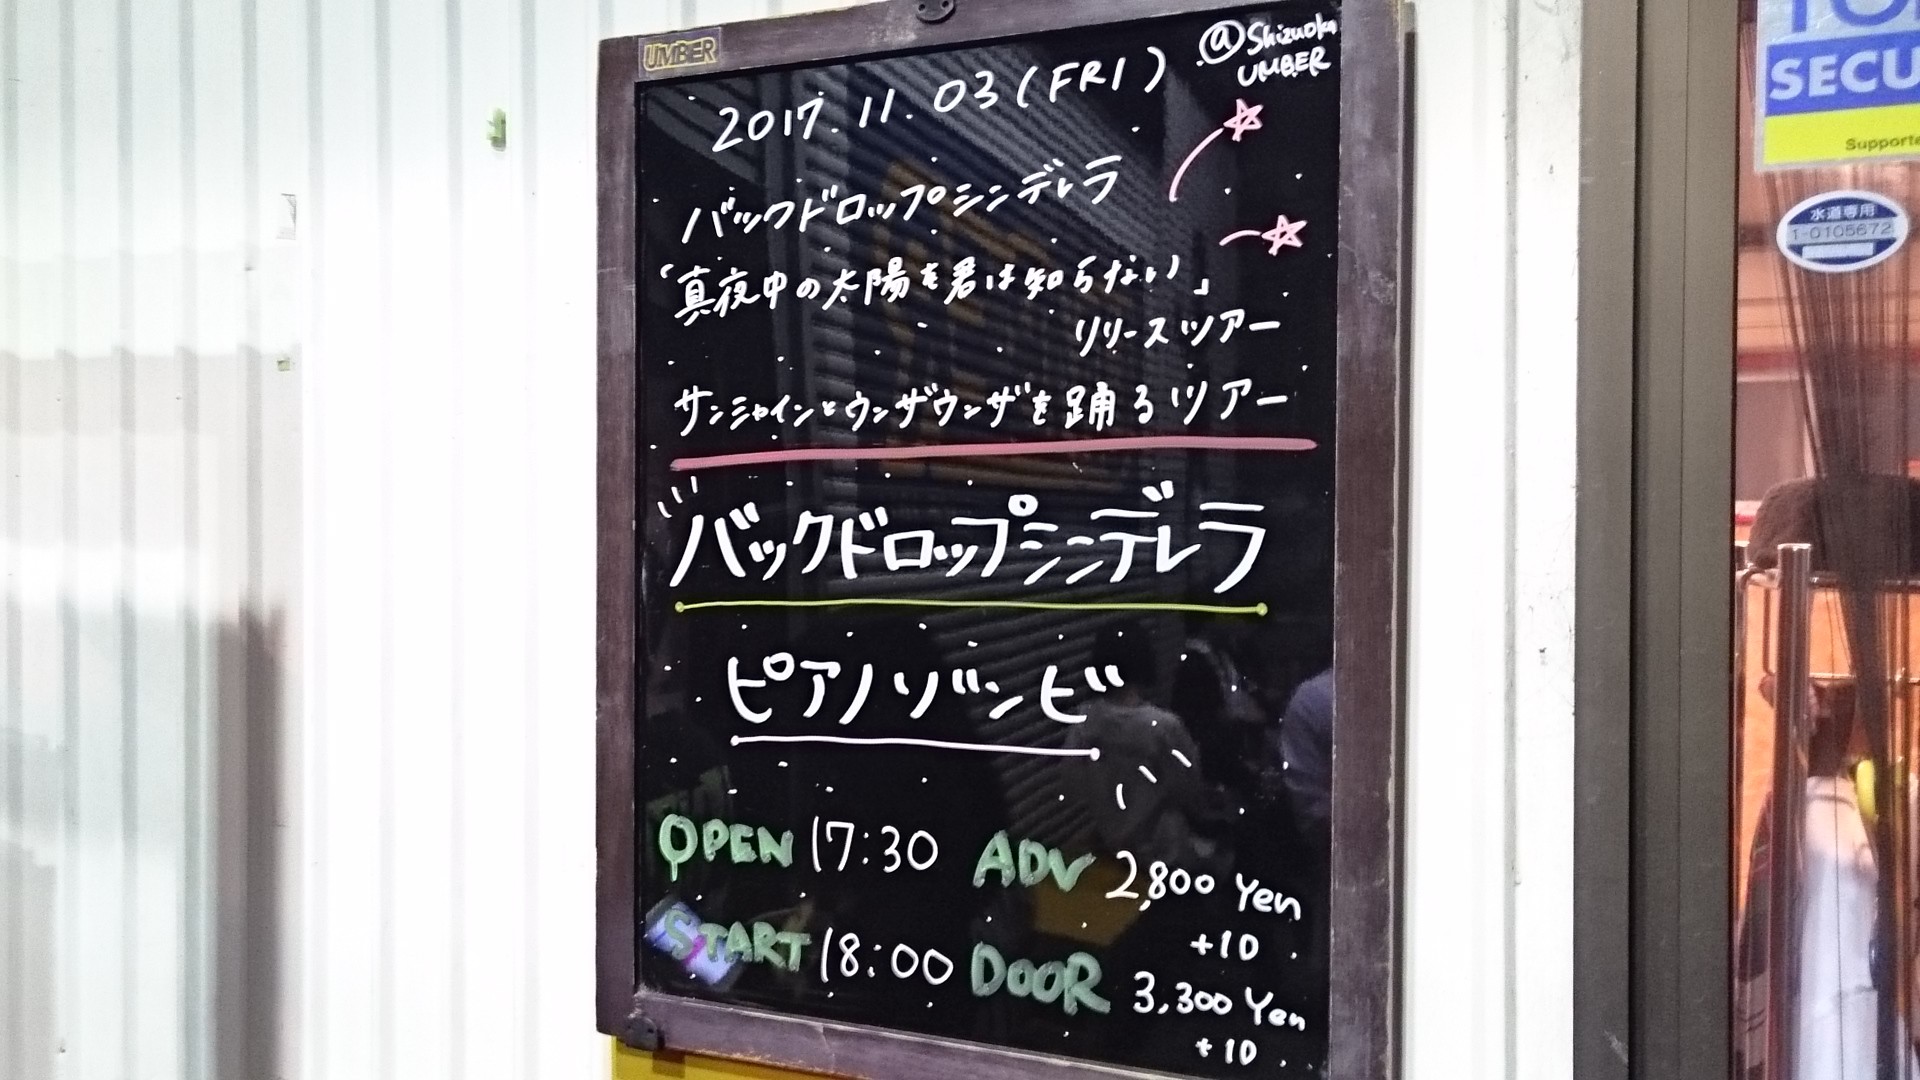 UMBER
@Shizuoka
UMBER
2017.11.03(FRI)
バックドロップシンデレラ
「真夜中の太陽を君は知らない」
リリースツアー
サンシャインとウンザウンザを踊るツアー
バックドロップシンデレラ
ピアノゾンビ
OPEN 17:30 ADV 2,800 Yen
+1D
START 18:00 DOOR 3,300 Yen
+1D
SECU
Supporte
水道専用
1-0105672